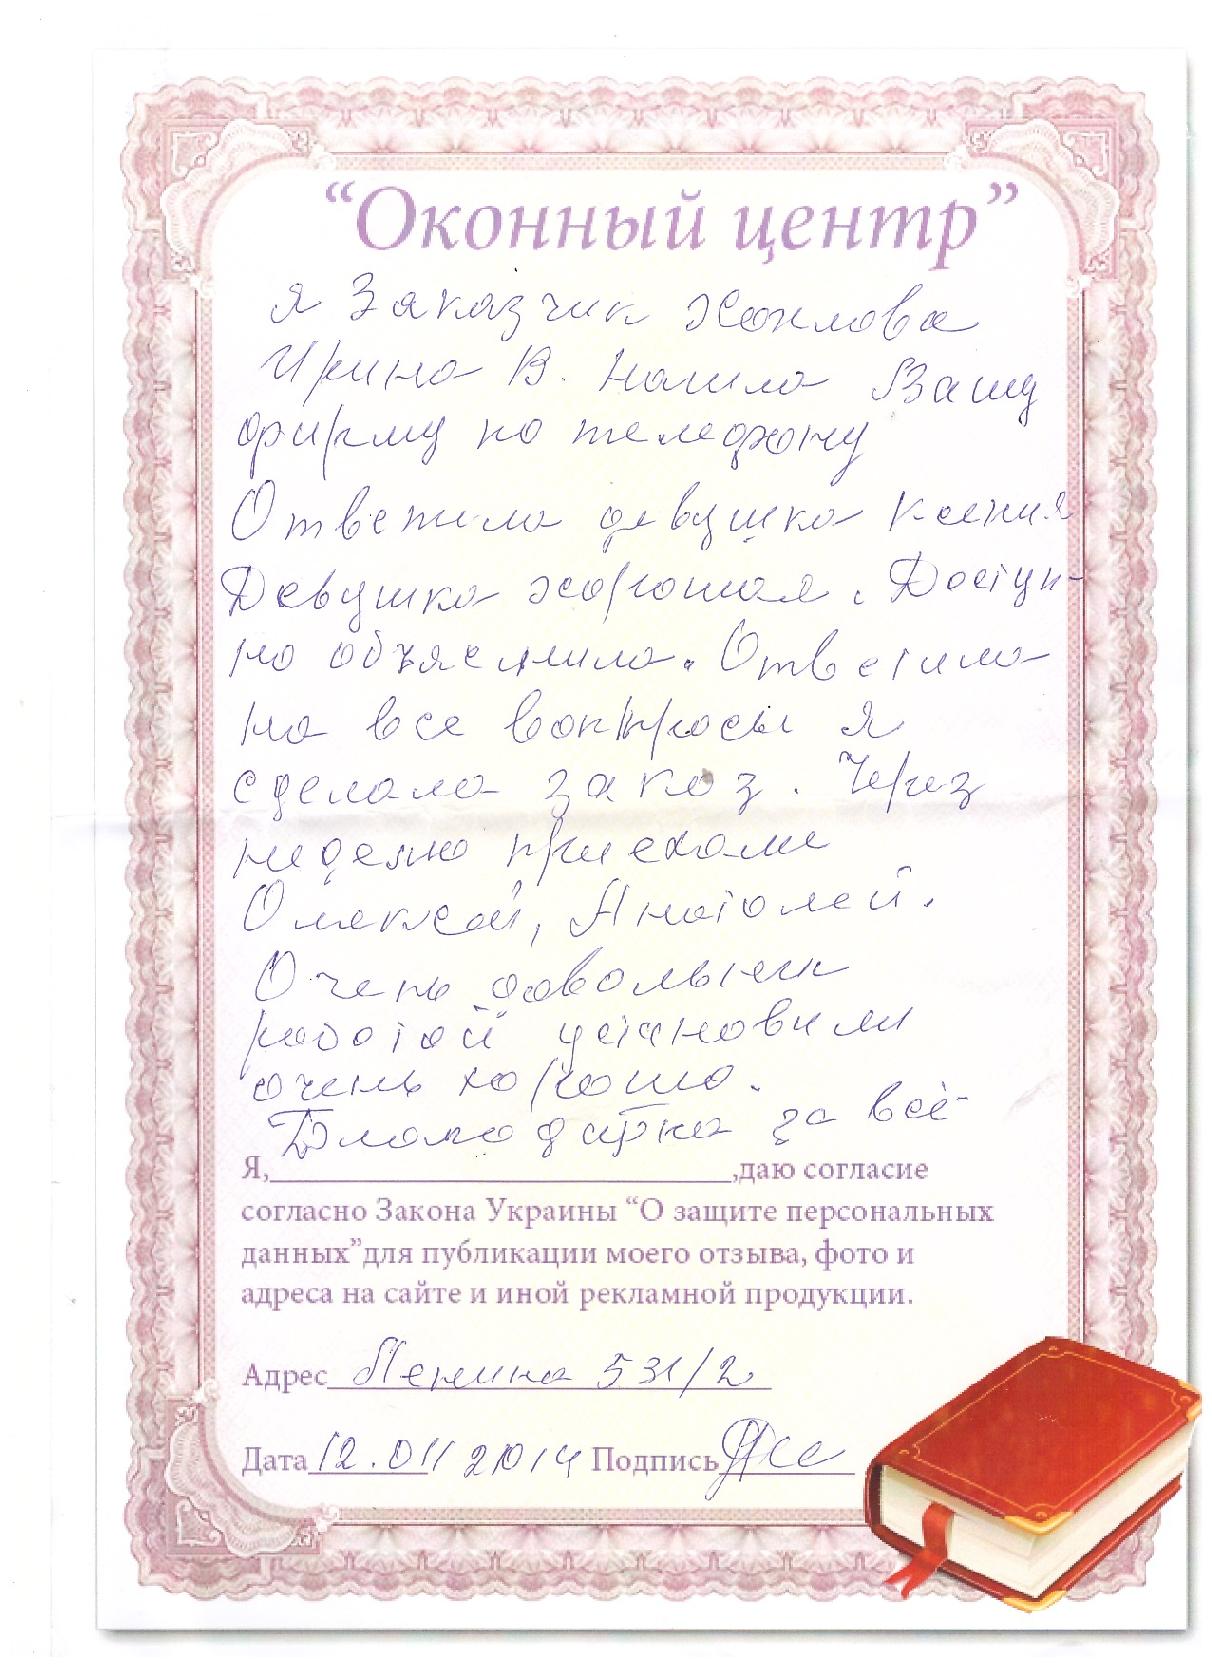 “Оконный центр”
я Заказчик
Ирина В. Нашла Вашу
фирму по телефону
Ответила девушка Ксения
Девушка хорошая. Доступ-
но объяснила. Ответила
на все вопросы я
сделала заказ. Через
неделю приехали
Алексей, Анатолей.
Очень довольны
работой установили
очень хорошо.
за всё
Я,____________,даю согласие
согласно Закона Украины “О защите персональных
данных”для публикации моего отзыва, фото и
адреса на сайте и иной рекламной продукции.
Адрес Ленина 531/2
Дата 12.011 2014 Подпись